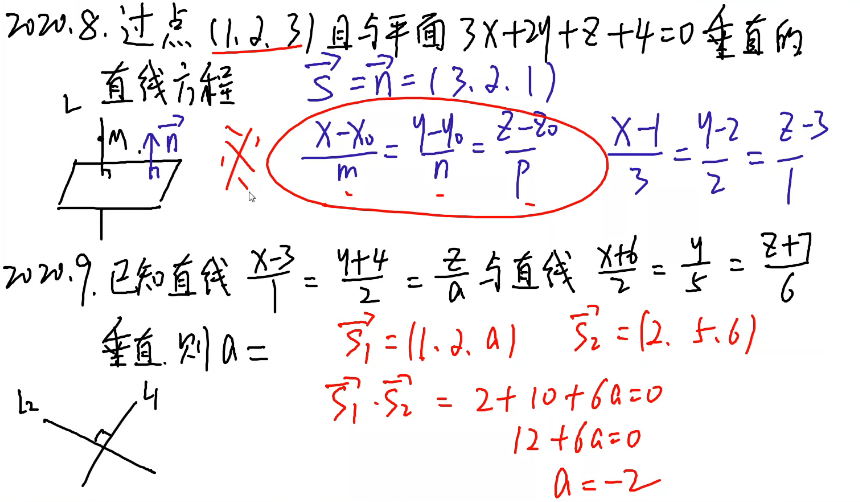 2020.8.过点(1.2.3)且与平面3x+2y+z+4=0垂直的
直线方程 s⃗=n⃗=(3.2.1)
L
M. n⃗
※ (x-x₀)/m=(y-y₀)/n=(z-z₀)/p (x-1)/3=(y-2)/2=(z-3)/1
2020.9.已知直线 (x-3)/1=(y+4)/2=z/a 与直线 (x+6)/2=y/5=(z+7)/6
垂直.则a= s⃗₁=(1.2.a) s⃗₂=(2.5.6)
L₂ L₁ s⃗₁·s⃗₂=2+10+6a=0
12+6a=0
a=-2